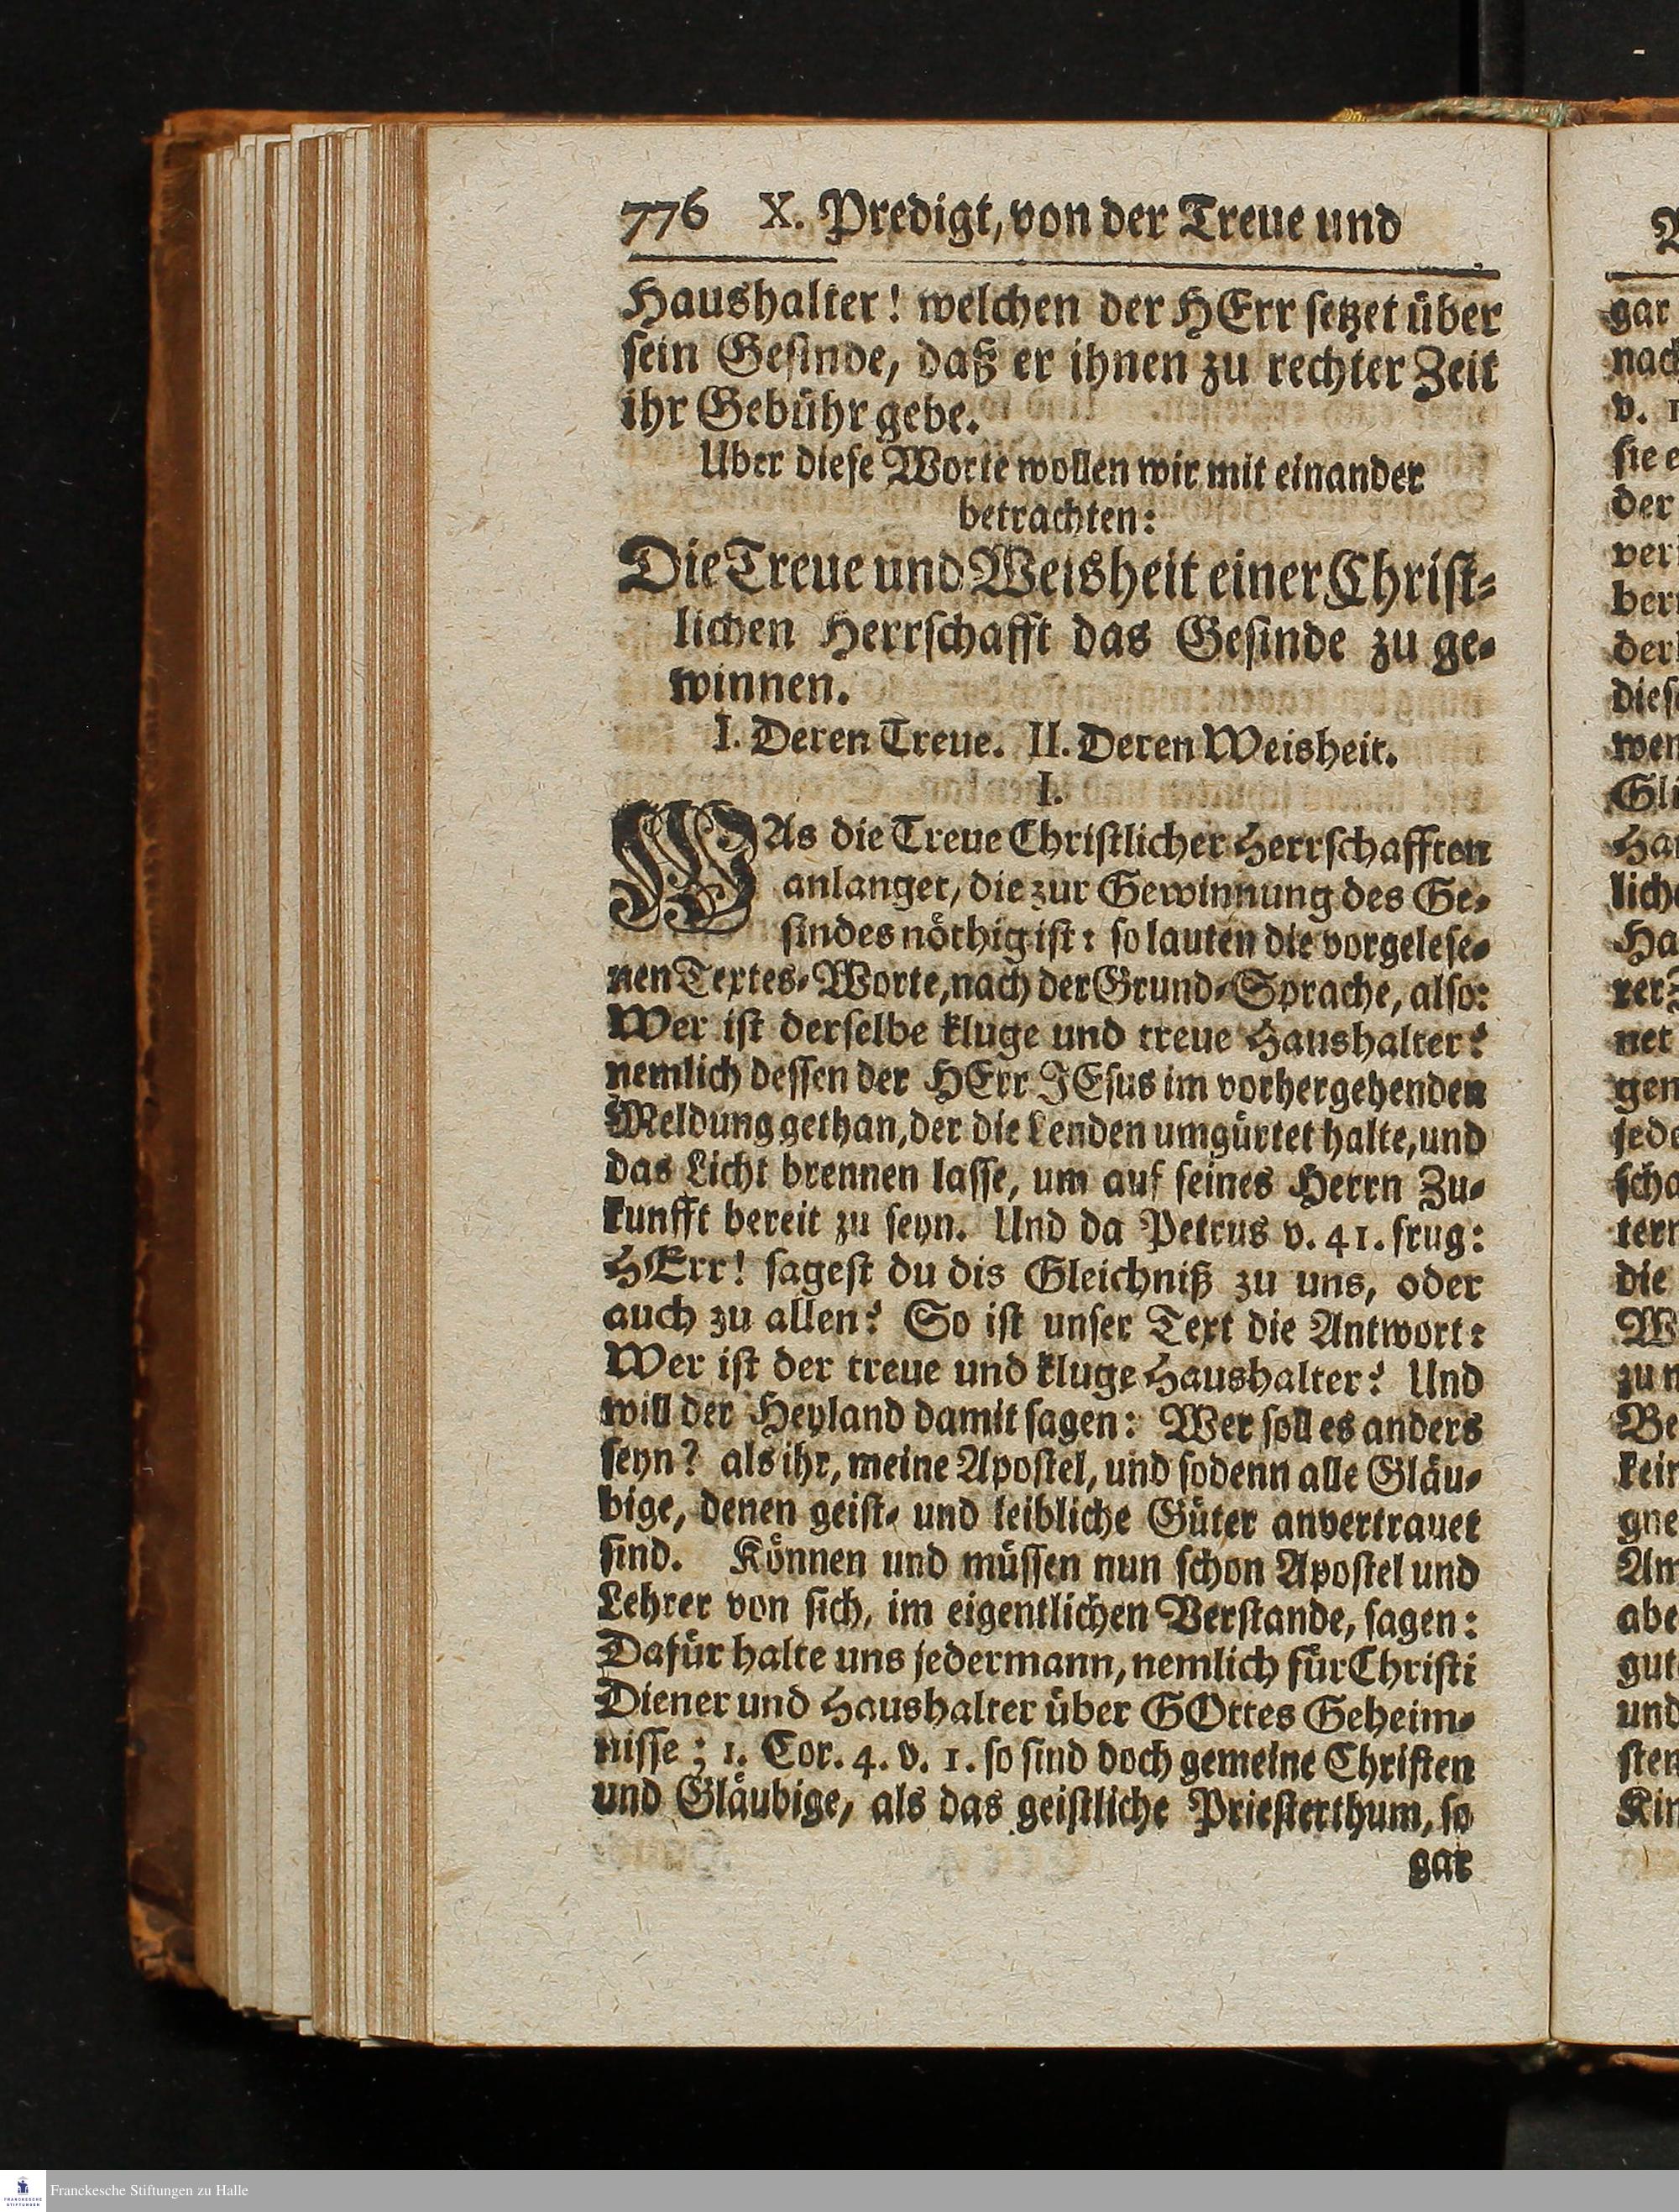 776 X. Predigt, von der Treue und
Haushalter! welchen der HErr setzet über
sein Gesinde, daß er ihnen zu rechter Zeit
ihr Gebühr gebe.
Uber diese Worte wollen wir mit einander
betrachten:
Die Treue und Weisheit einer Christ-
lichen Herrschafft das Gesinde zu ge-
winnen.
I. Deren Treue. II. Deren Weisheit.
I.
WAs die Treue Christlicher Herrschafften
anlanget, die zur Gewinnung des Ge-
sindes nöthig ist: so lauten die vorgelese-
nen Textes-Worte, nach der Grund-Sprache, also:
Wer ist derselbe kluge und treue Haushalter?
nemlich dessen der HErr JEsus im vorhergehenden
Meldung gethan, der die Lenden umgürtet halte, und
das Licht brennen lasse, um auf seines Herrn Zu-
kunfft bereit zu seyn. Und da Petrus v. 41. frug:
HErr! sagest du dis Gleichniß zu uns, oder
auch zu allen? So ist unser Text die Antwort:
Wer ist der treue und kluge Haushalter? Und
will der Heyland damit sagen: Wer soll es anders
seyn? als ihr, meine Apostel, und sodenn alle Gläu-
bige, denen geist- und leibliche Güter anvertrauet
sind. Können und müssen nun schon Apostel und
Lehrer von sich, im eigentlichen Verstande, sagen:
Dafür halte uns jedermann, nemlich für Christi
Diener und Haushalter über GOttes Geheim-
nisse; 1. Cor. 4. v. 1. so sind doch gemeine Christen
und Gläubige, als das geistliche Priesterthum, so
gar
gar
nach
v. 1
sie e
der
ber
der
dies
wer
lich
Ha
net
gen
jede
scha
tern
die
zu n
Be
kein
gne
Am
abe
gut
und
sten
Kin
Franckesche Stiftungen zu Halle
FRANCKESCHE
STIFTUNGEN